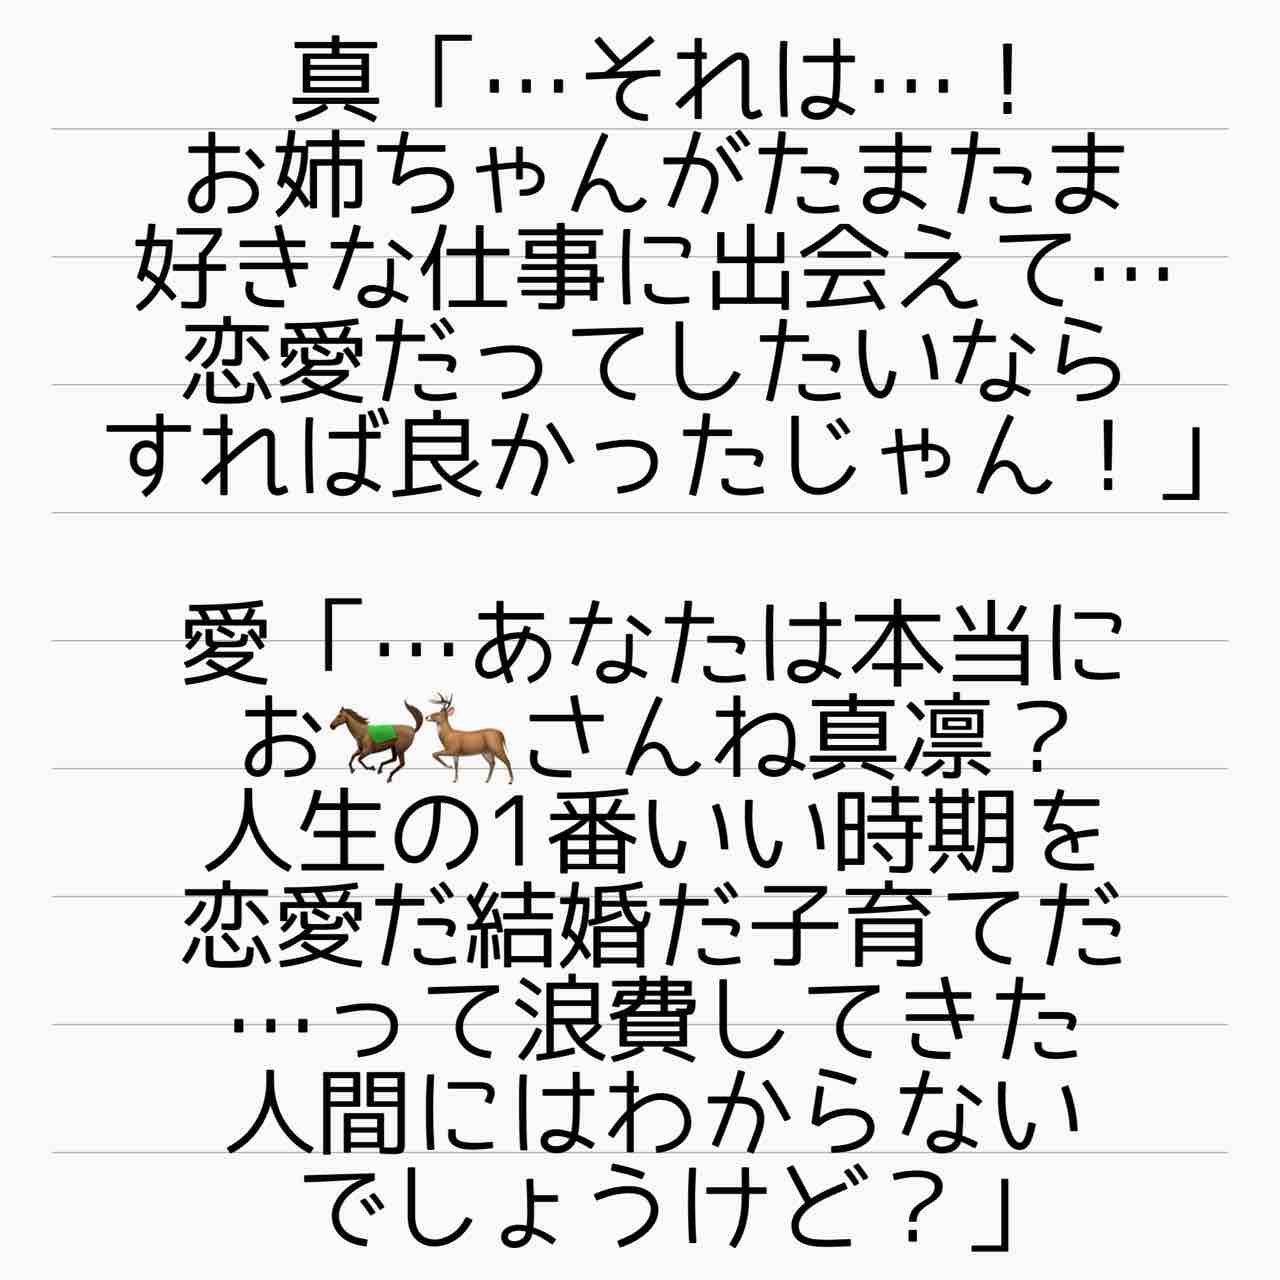 真「…それは…！
お姉ちゃんがたまたま
好きな仕事に出会えて…
恋愛だってしたいなら
すれば良かったじゃん！」
愛「…あなたは本当に
お🐎🦌さんね真凛？
人生の1番いい時期を
恋愛だ結婚だ子育てだ
…って浪費してきた
人間にはわからない
でしょうけど？」